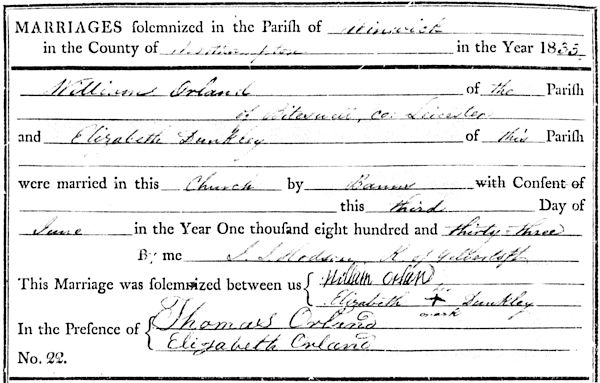 MARRIAGES solemnized in the Parish of Winwick
in the County of Northampton in the Year 1833
William Orland of the Parish
of Bitteswell, co: Leicester
and Elizabeth Dunkley of this Parish
were married in this Church by Banns with Consent of
this third Day of
June in the Year One thousand eight hundred and thirty-three
By me
This Marriage was solemnized between us { William Orland
Elizabeth + Dunkley
mark
In the Presence of { Thomas Orland
Elizabeth Orland
No. 22.